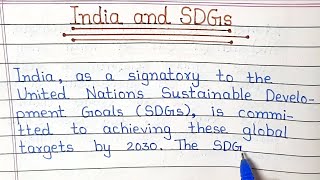 India and SDGs
India, as a signatory to the
United Nations Sustainable Develo-
pment Goals (SDGs), is commi-
tted to achieving these global
targets by 2030. The SDG